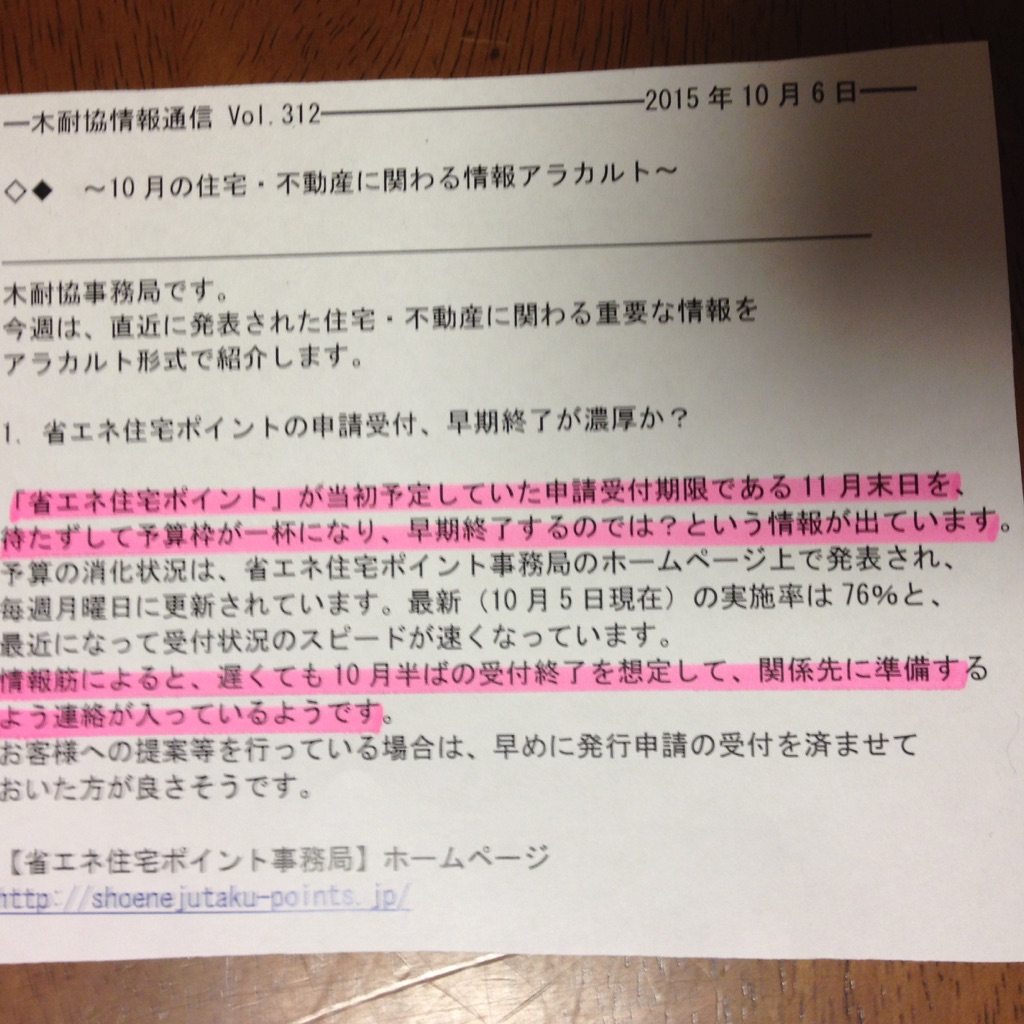 ―木耐協情報通信 Vol.312――――――――――2015年10月6日――
◇◆　～10月の住宅・不動産に関わる情報アラカルト～
木耐協事務局です。
今週は、直近に発表された住宅・不動産に関わる重要な情報を
アラカルト形式で紹介します。
1. 省エネ住宅ポイントの申請受付、早期終了が濃厚か？
「省エネ住宅ポイント」が当初予定していた申請受付期限である11月末日を、
待たずして予算枠が一杯になり、早期終了するのでは？という情報が出ています。
予算の消化状況は、省エネ住宅ポイント事務局のホームページ上で発表され、
毎週月曜日に更新されています。最新（10月5日現在）の実施率は76％と、
最近になって受付状況のスピードが速くなっています。
情報筋によると、遅くても10月半ばの受付終了を想定して、関係先に準備する
よう連絡が入っているようです。
お客様への提案等を行っている場合は、早めに発行申請の受付を済ませて
おいた方が良さそうです。
【省エネ住宅ポイント事務局】ホームページ
http://shoenejutaku-points.jp/